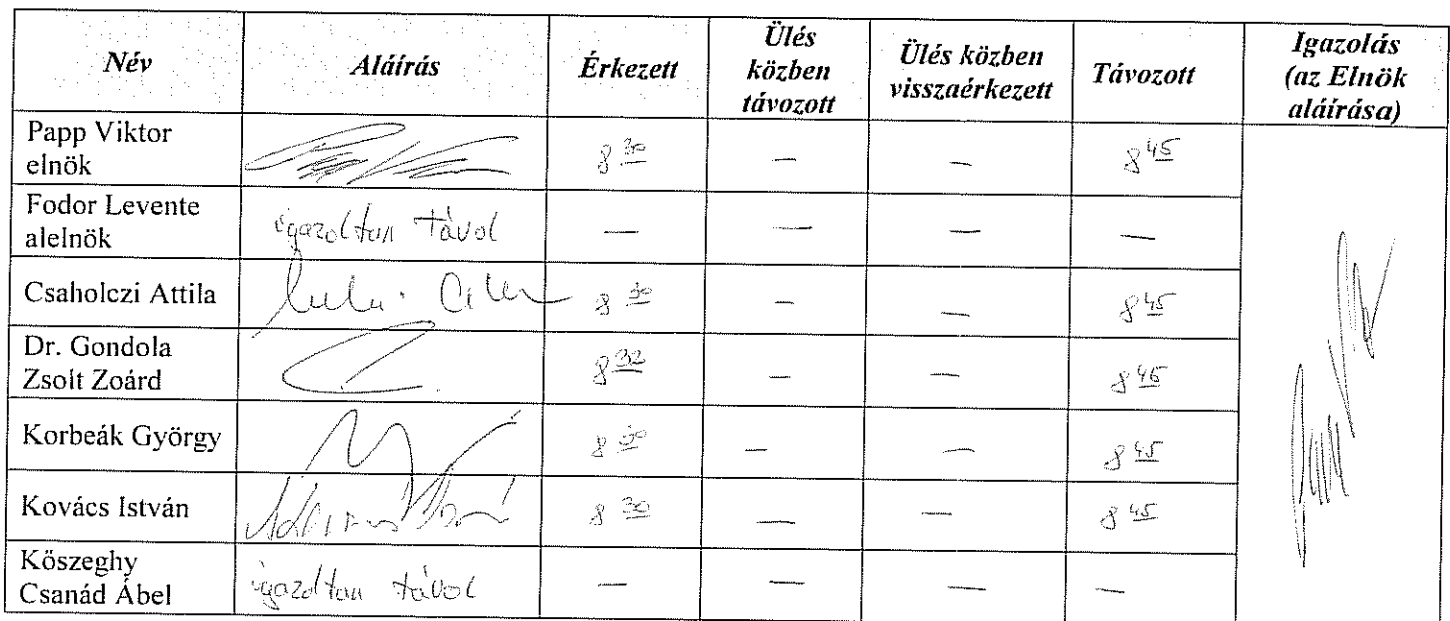 Név Aláírás Érkezett Ülés közben távozott Ülés közben visszaérkezett Távozott Igazolás (az Elnök aláírása)
Papp Viktor elnök 8 30 — — 8 45
Fodor Levente alelnök igazoltan távol — — — —
Csaholczi Attila 8 30 — — 8 45
Dr. Gondola Zsolt Zoárd 8 32 — — 8 45
Korbeák György 8 30 — — 8 45
Kovács István 8 30 — — 8 45
Kőszeghy Csanád Ábel igazoltan távol — — — —